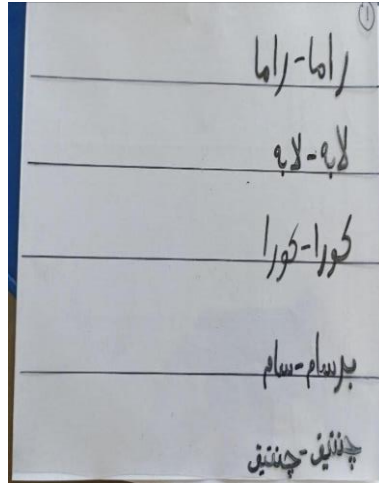 ①
راما-راما
لابه-لابه
کورا-کورا
برسام-سام
چنتيق-چنتيق